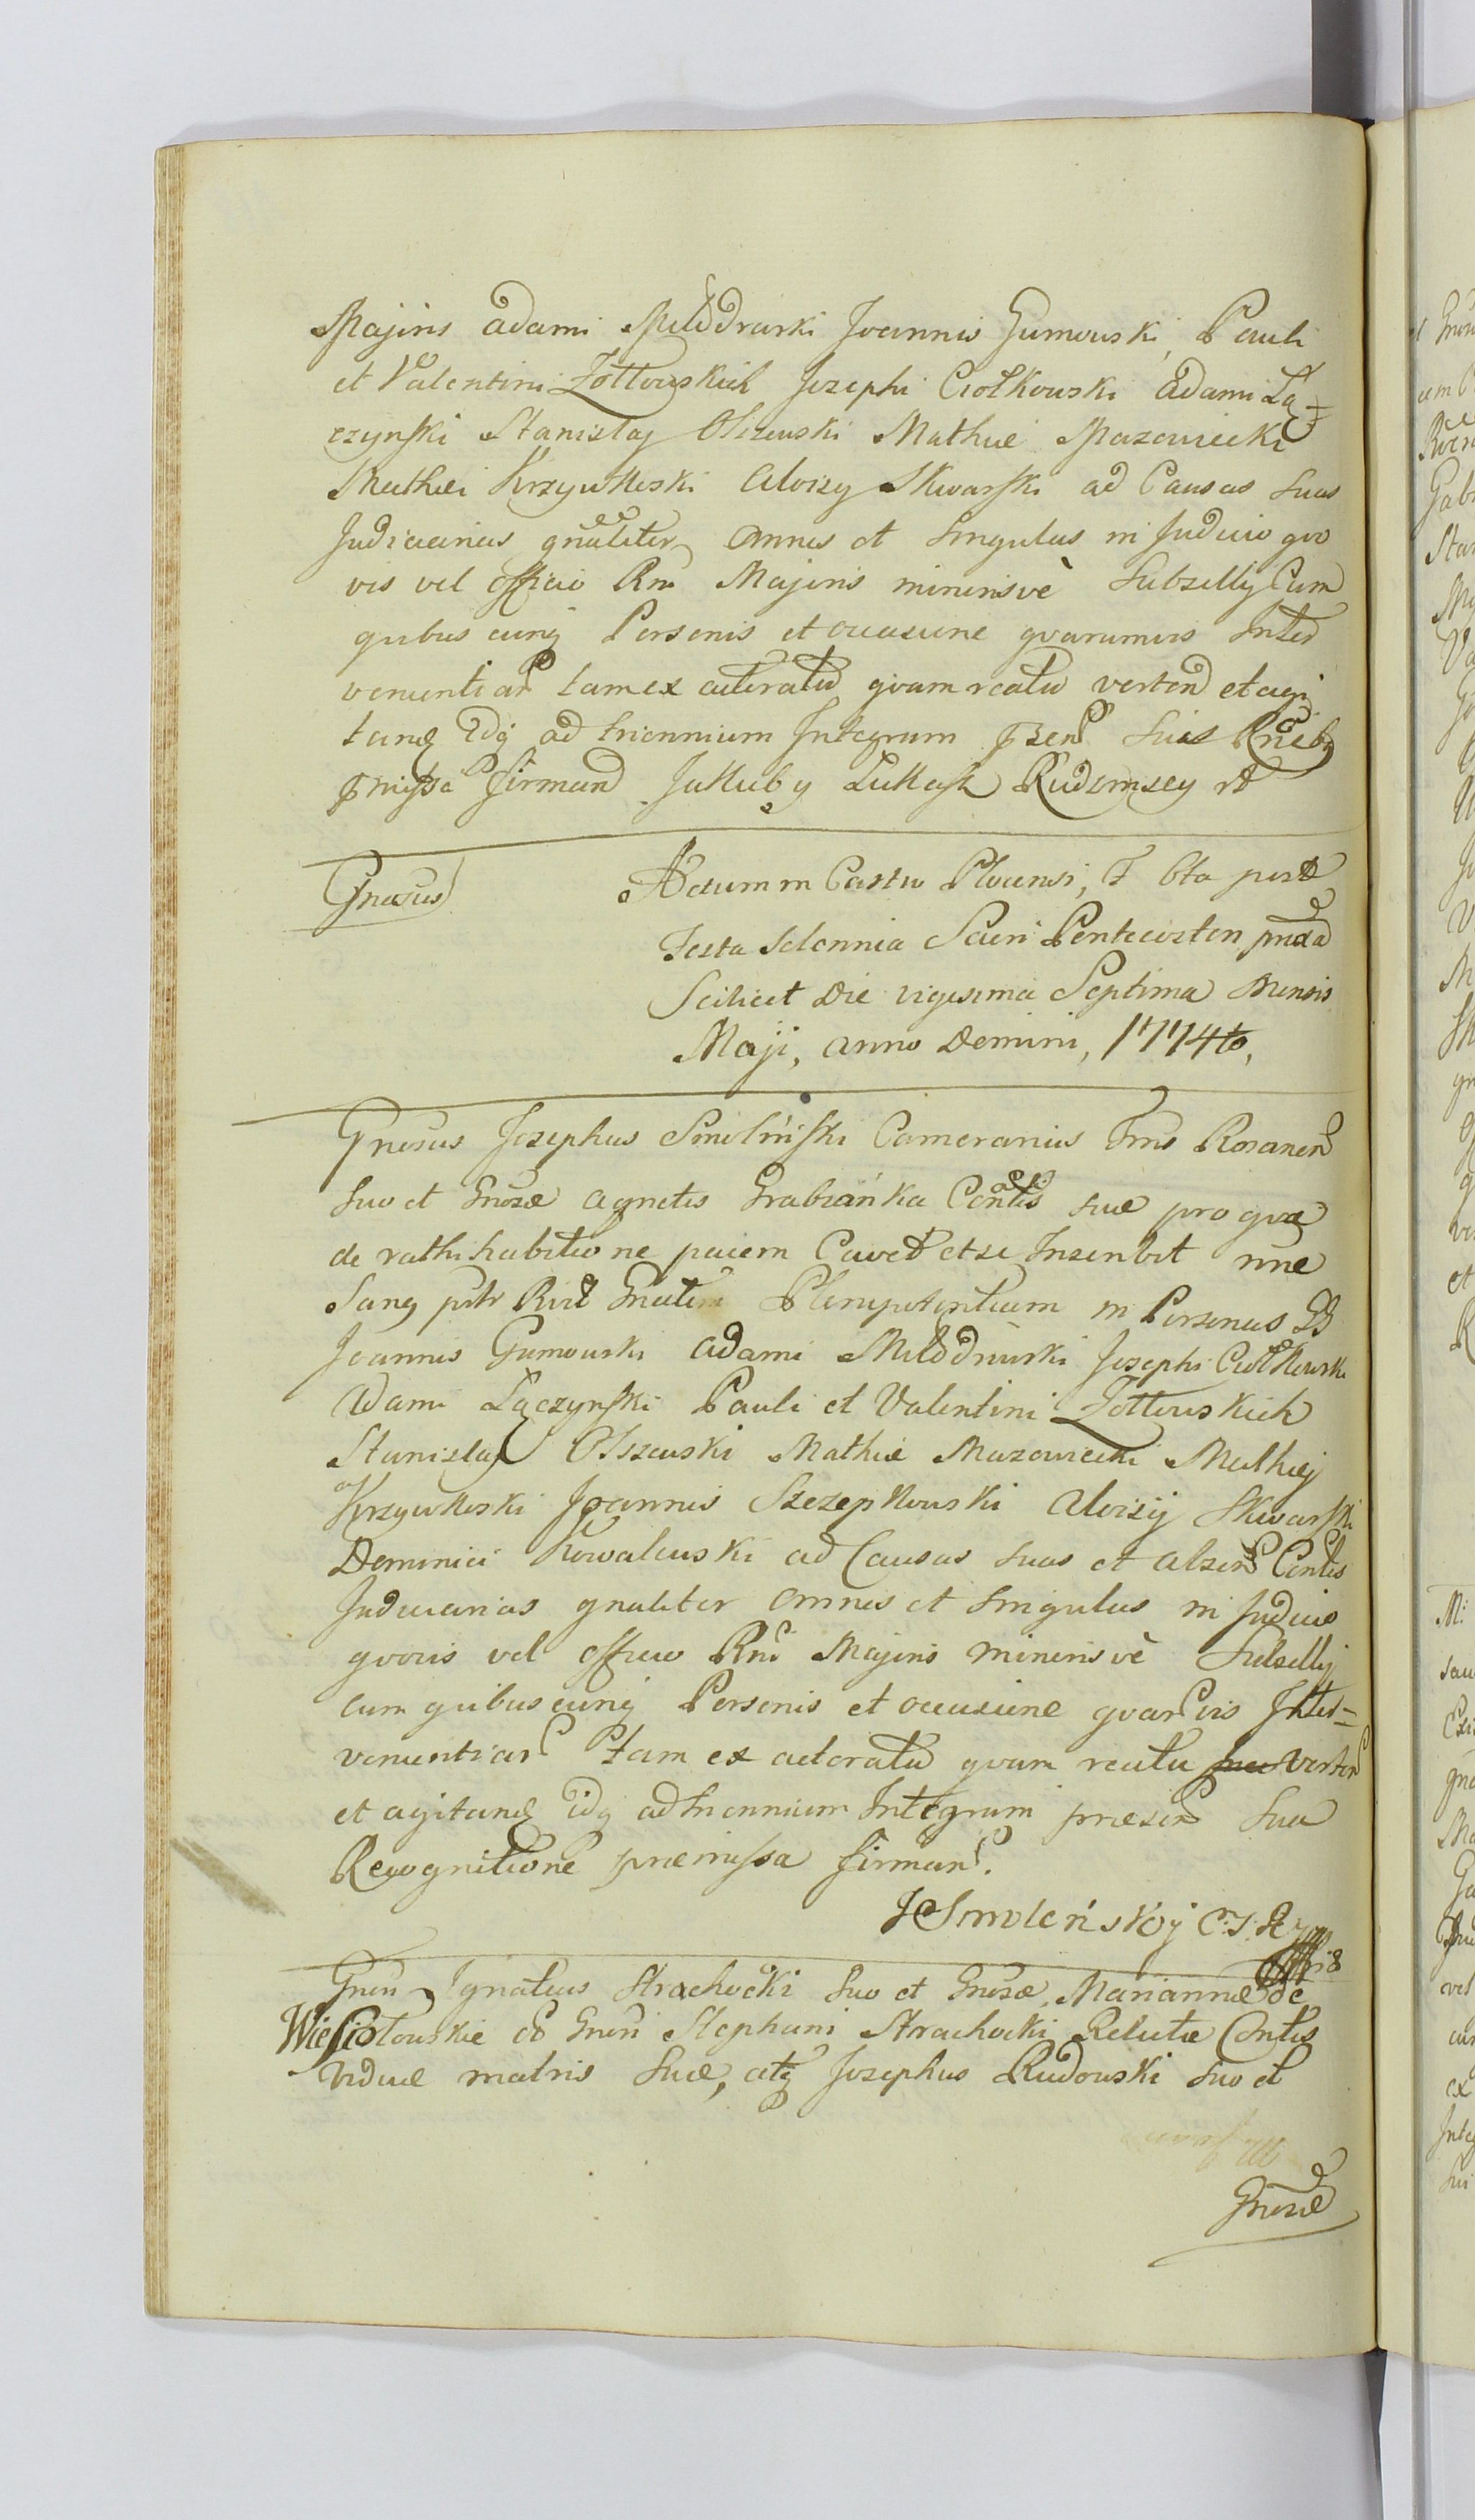 Majoris Adami Młodzianski Joannis Gumowski, Pauli
et Valentini Zołtowskich Josephi Ciołkowski Adami Lą=
czynski Stanislay Olszewski Mathiæ Mazowiecki
Mathei Krzywkoski Aloisy Skwarski ad Causas suas
Judiciarias gnaliter omnes et singulas in Judicio quo
vis vel officio Rni Majoris minorisve Subselly Cum
quibus cunq Personis et occasione quarumvis Inter
venientiar tam ex actoratu quam reatu verten et agi
tand Idq ad triennium Integrum pnsen suis Rneb
pmissa firmand Jakub y Lukasz Rudomscy
Gnosus
Actum in Castro Plocensi, F 6ta post
Festa Solennia Sacri Pentecosten
Scilicet Die vigesima Septima Mensis
Maji, anno Domini, 1774to,
Gnosus Josephus Smoliński Camerarius Trns Rozanen
suo et Gnosæ Agnetis Grabiańka Contis suæ pro qua
de rathihabitione pacem Cavet et se Inscribit nne
Sanq Gnalem Plenipotentiam in Personas GG
Joannis Gumowski Adami Młodzianski Josephi Ciołkowski
Adami Lączynski Pauli et Valentini Zołtowskich
Stanislay Olszewski Mathiæ Mazowiecki Mathiej
Krzywkoski Joannis Szczepkowski Aloisij Skwarski
Dominici Kowalewski ad Causas suas et absen Contis
Judiciarias gnaliter omnes et singulas in Judicio
quovis vel officio Rni Majoris minorisve Subsellij
cum quibuscunq Personis et occasione quarvis Inter=
venientiar tam ex actoratu quam reatu verten
et agitand idq ad triennium Integrum præsen sua
Recognitione præmissa firman.
J Smoleńskÿ C. Z. R.
Gnsi Ignatius Strachocki suo et Gnosæ Mariannæ de
Wiesiołowskie G Gnosi Stephani Strachocki Relictæ Contis
Viduæ matris suæ, atq Josephus Rudowski suo et
Gnosæ